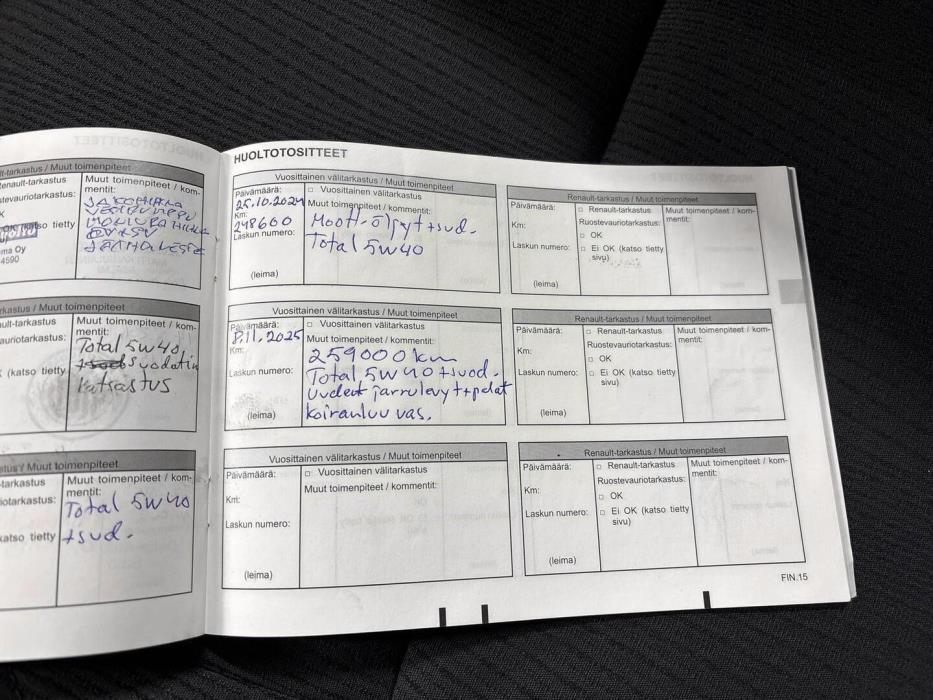 HUOLTOTOSITTEET
lt-tarkastus / Muut toimenpiteet
Renault-tarkastus
stevauriotarkastus:
K
OK (katso tietty
ma Oy
4590
Muut toimenpiteet / kom-
mentit:
JAKOHIHNA
VESIPUMPPU
MONIURAHIHNA
rkastus / Muut toimenpiteet
ault-tarkastus
auriotarkastus:
(katso tietty
Muut toimenpiteet / kom-
mentit:
Total 5w40,
suodatin
Katsastus
astus / Muut toimenpiteet
-tarkastus
iotarkastus:
katso tietty
Muut toimenpiteet / kom-
mentit:
Total 5w40
+sud.
Vuosittainen välitarkastus / Muut toimenpiteet
Päivämäärä:
25.10.2024
Km:
248600
Laskun numero:
(leima)
□ Vuosittainen välitarkastus
Muut toimenpiteet / kommentit:
Moott-öljyt+sud.
Total 5w40
Renault-tarkastus / Muut toimenpiteet
Päivämäärä:
Km:
Laskun numero:
(leima)
□ Renault-tarkastus
Ruostevauriotarkastus:
□ OK
□ Ei OK (katso tietty
sivu)
Muut toimenpiteet / kom-
mentit:
Vuosittainen välitarkastus / Muut toimenpiteet
Päivämäärä:
8.11.2025
Km:
Laskun numero:
(leima)
□ Vuosittainen välitarkastus
Muut toimenpiteet / kommentit:
259000km
Total 5w40+suod.
Uudet jarrulevyt+palat
koiranluu vas.
Renault-tarkastus / Muut toimenpiteet
Päivämäärä:
Km:
Laskun numero:
(leima)
□ Renault-tarkastus
Ruostevauriotarkastus:
□ OK
□ Ei OK (katso tietty
sivu)
Muut toimenpiteet / kom-
mentit:
Vuosittainen välitarkastus / Muut toimenpiteet
Päivämäärä:
Km:
Laskun numero:
(leima)
□ Vuosittainen välitarkastus
Muut toimenpiteet / kommentit:
Renault-tarkastus / Muut toimenpiteet
Päivämäärä:
Km:
Laskun numero:
(leima)
□ Renault-tarkastus
Ruostevauriotarkastus:
□ OK
□ Ei OK (katso tietty
sivu)
Muut toimenpiteet / kom-
mentit:
FIN.15